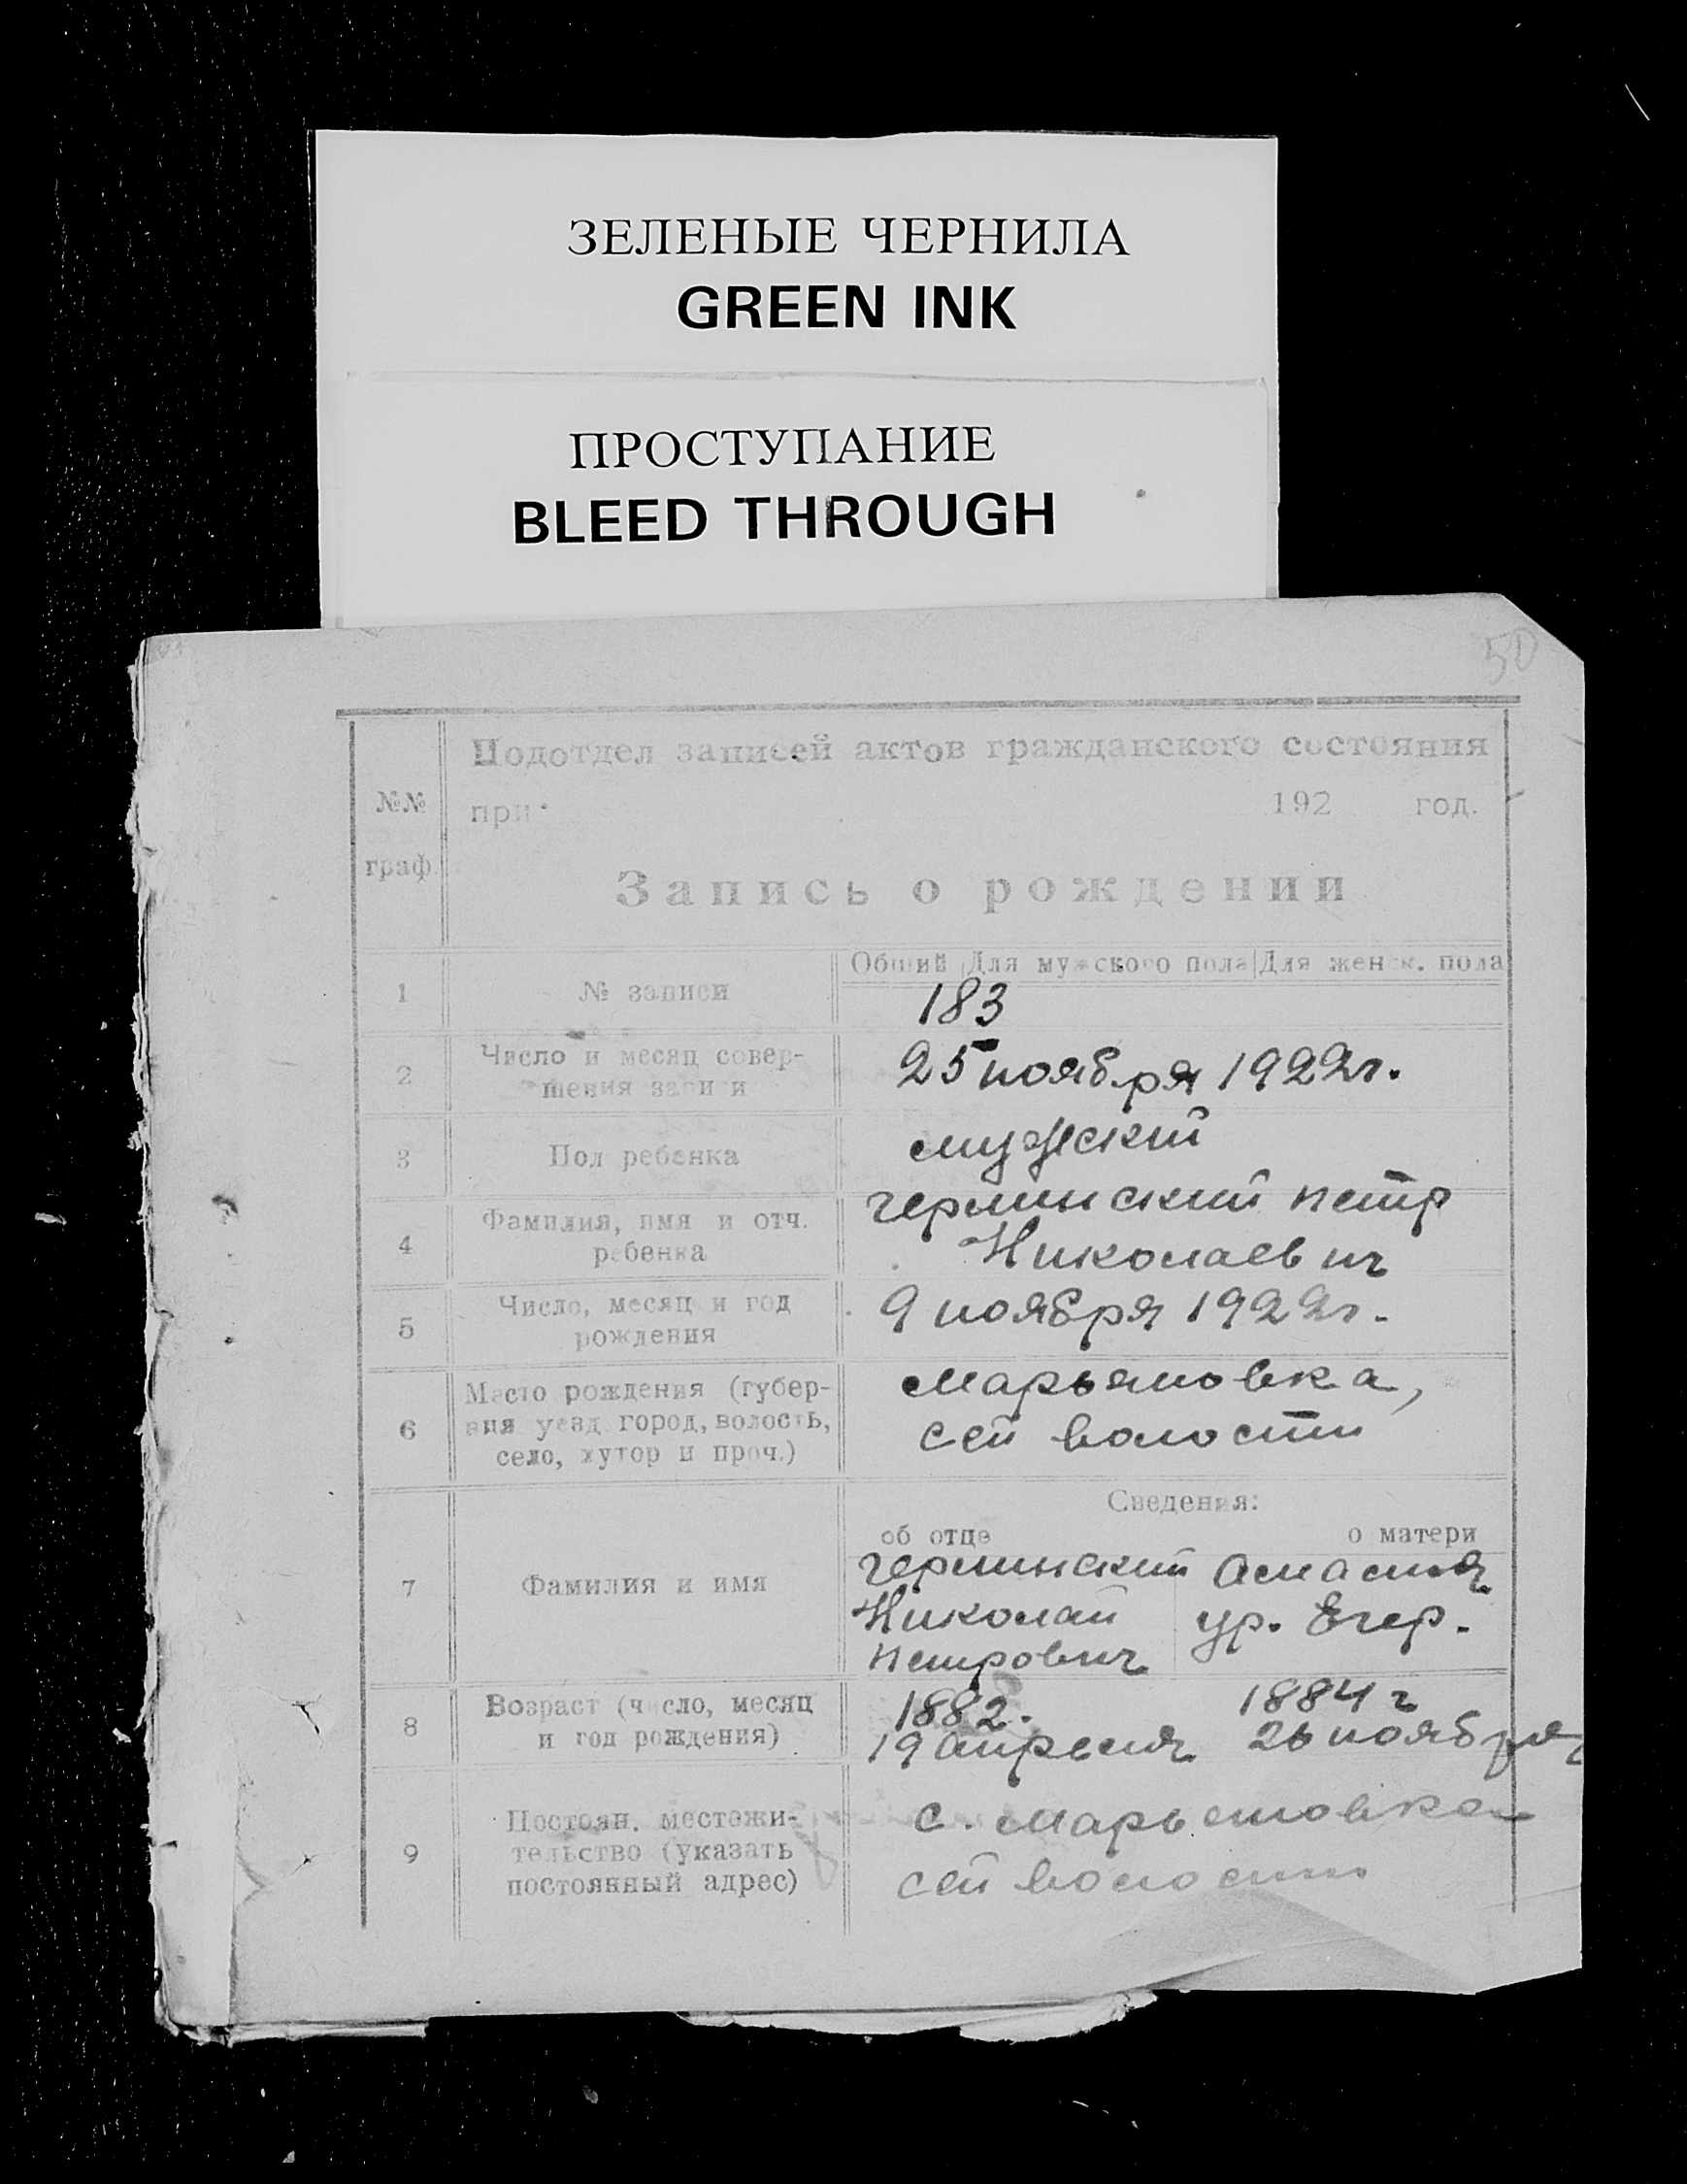 ЗЕЛЕНЫЕ ЧЕРНИЛА
GREEN INK
ПРОСТУПАНИЕ
BLEED THROUGH
50
Подотдел записей актов гражданского состояния
№№ при 192 год.
граф
Запись о рождении
Общий Для мужского пола Для женск. пола
1 № записи 183
2 Число и месяц совер-
шения записи 25 ноября 1922 г.
3 Пол ребенка мужский
4 Фамилия, имя и отч.
ребенка
Герминский Петр
Николаевич
5 Число, месяц и год
рождения 9 ноября 1922 г.
6 Место рождения (губер-
ния уезд город, волость,
село, хутор и проч.)
Марьяновка,
сей волости
Сведения:
об отце о матери
7 Фамилия и имя
Герминский
Николай ур. Егер.
Петрович
8 Возраст (число, месяц
и год рождения)
1882. 1884 г
19 апреля 26 ноября
9 Постоян. местожи-
тельство (указать
постоянный адрес)
с. Марьяновка
сей волости